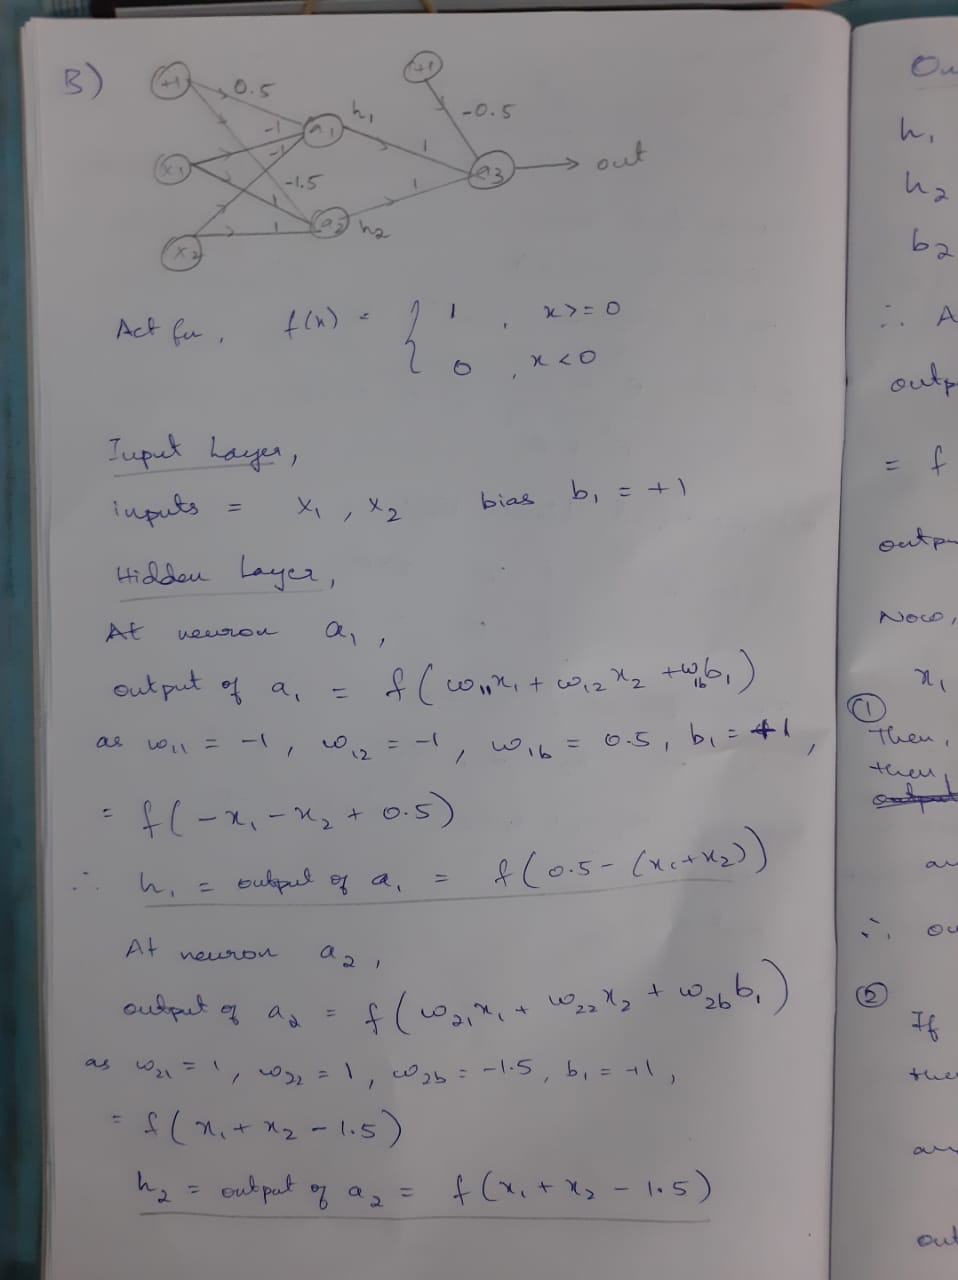 B)
+1 0.5 +1
h₁ -0.5
-1 a₁ 1
x₁ -1 a3 out
-1.5
1 1
1 a₂ h₂
x₂
Act fn, f(x) = { 1 , x >= 0
0 , x < 0
Input Layer,
inputs = x₁, x₂ bias b₁ = +1
Hidden Layer,
At neuron a₁,
output of a₁ = f(w₁₁x₁ + w₁₂x₂ + w₁bb₁)
as w₁₁ = -1, w₁₂ = -1, w₁b = 0.5, b₁ = +1,
= f(-x₁ - x₂ + 0.5)
∴ h₁ = output of a₁ = f(0.5 - (x₁+x₂))
At neuron a₂,
output of a₂ = f(w₂₁x₁ + w₂₂x₂ + w₂bb₁)
as w₂₁ = 1, w₂₂ = 1, w₂b = -1.5, b₁ = +1,
= f(x₁ + x₂ - 1.5)
h₂ = output of a₂ = f(x₁ + x₂ - 1.5)
h₁
h₂
b₂
∴ A
= f
Now,
x₁
①
Then,
then,
∴
②
If